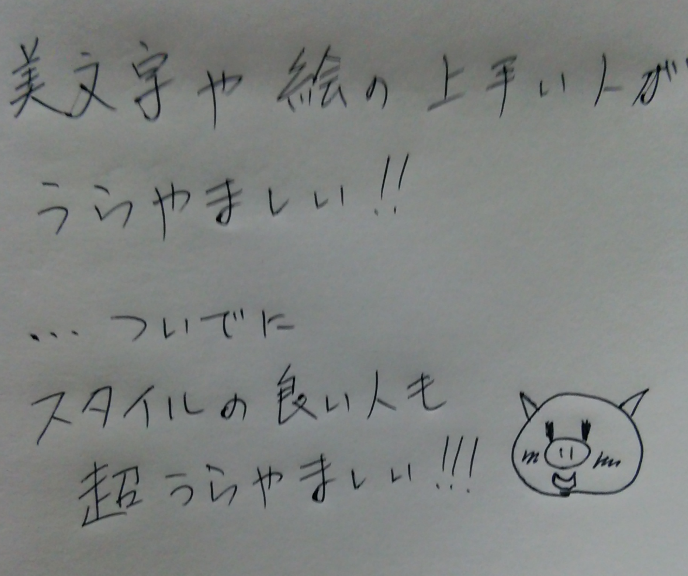 美文字や絵の上手い人が
うらやましい!!
…ついでに
スタイルの良い人も
超うらやましい!!!